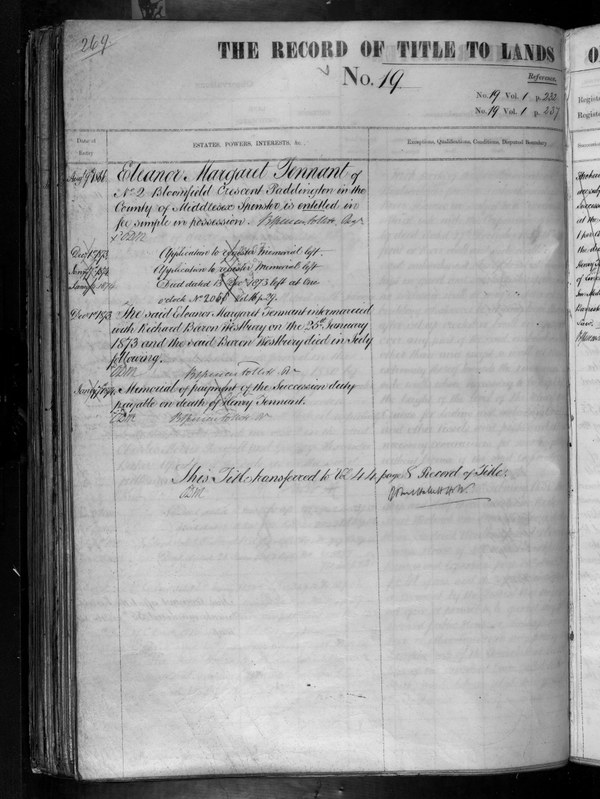 269
THE RECORD OF TITLE TO LANDS
No. 19
Reference.
No. 19 Vol. 1 p. 232
No. 19 Vol. 1 p. 237
Date of Entry
ESTATES, POWERS, INTERESTS, &c.
Exceptions, Qualifications, Conditions, Disputed Boundary
Eleanor Margaret Tennant of
No 2 Bloomfield Crescent Paddington in the
County of Middlesex Spinster is entitled in
fee simple in possession.
Dec 1st 1873 Application to register Memorial left.
Application to register Memorial left
Deed dated 13 1873 left at One
o'clock No 2061 Vol 16 p. 29.
Dec 1st 1873 The said Eleanor Margaret Tennant intermarried
with Richard Baron Westbury on the 25th January
1873 and the said Baron Westbury died in July
following.
Memorial of payment of the Succession duty
payable on death of Henry Tennant.
This Title transferred to Vol 44 page 8 Record of Title.